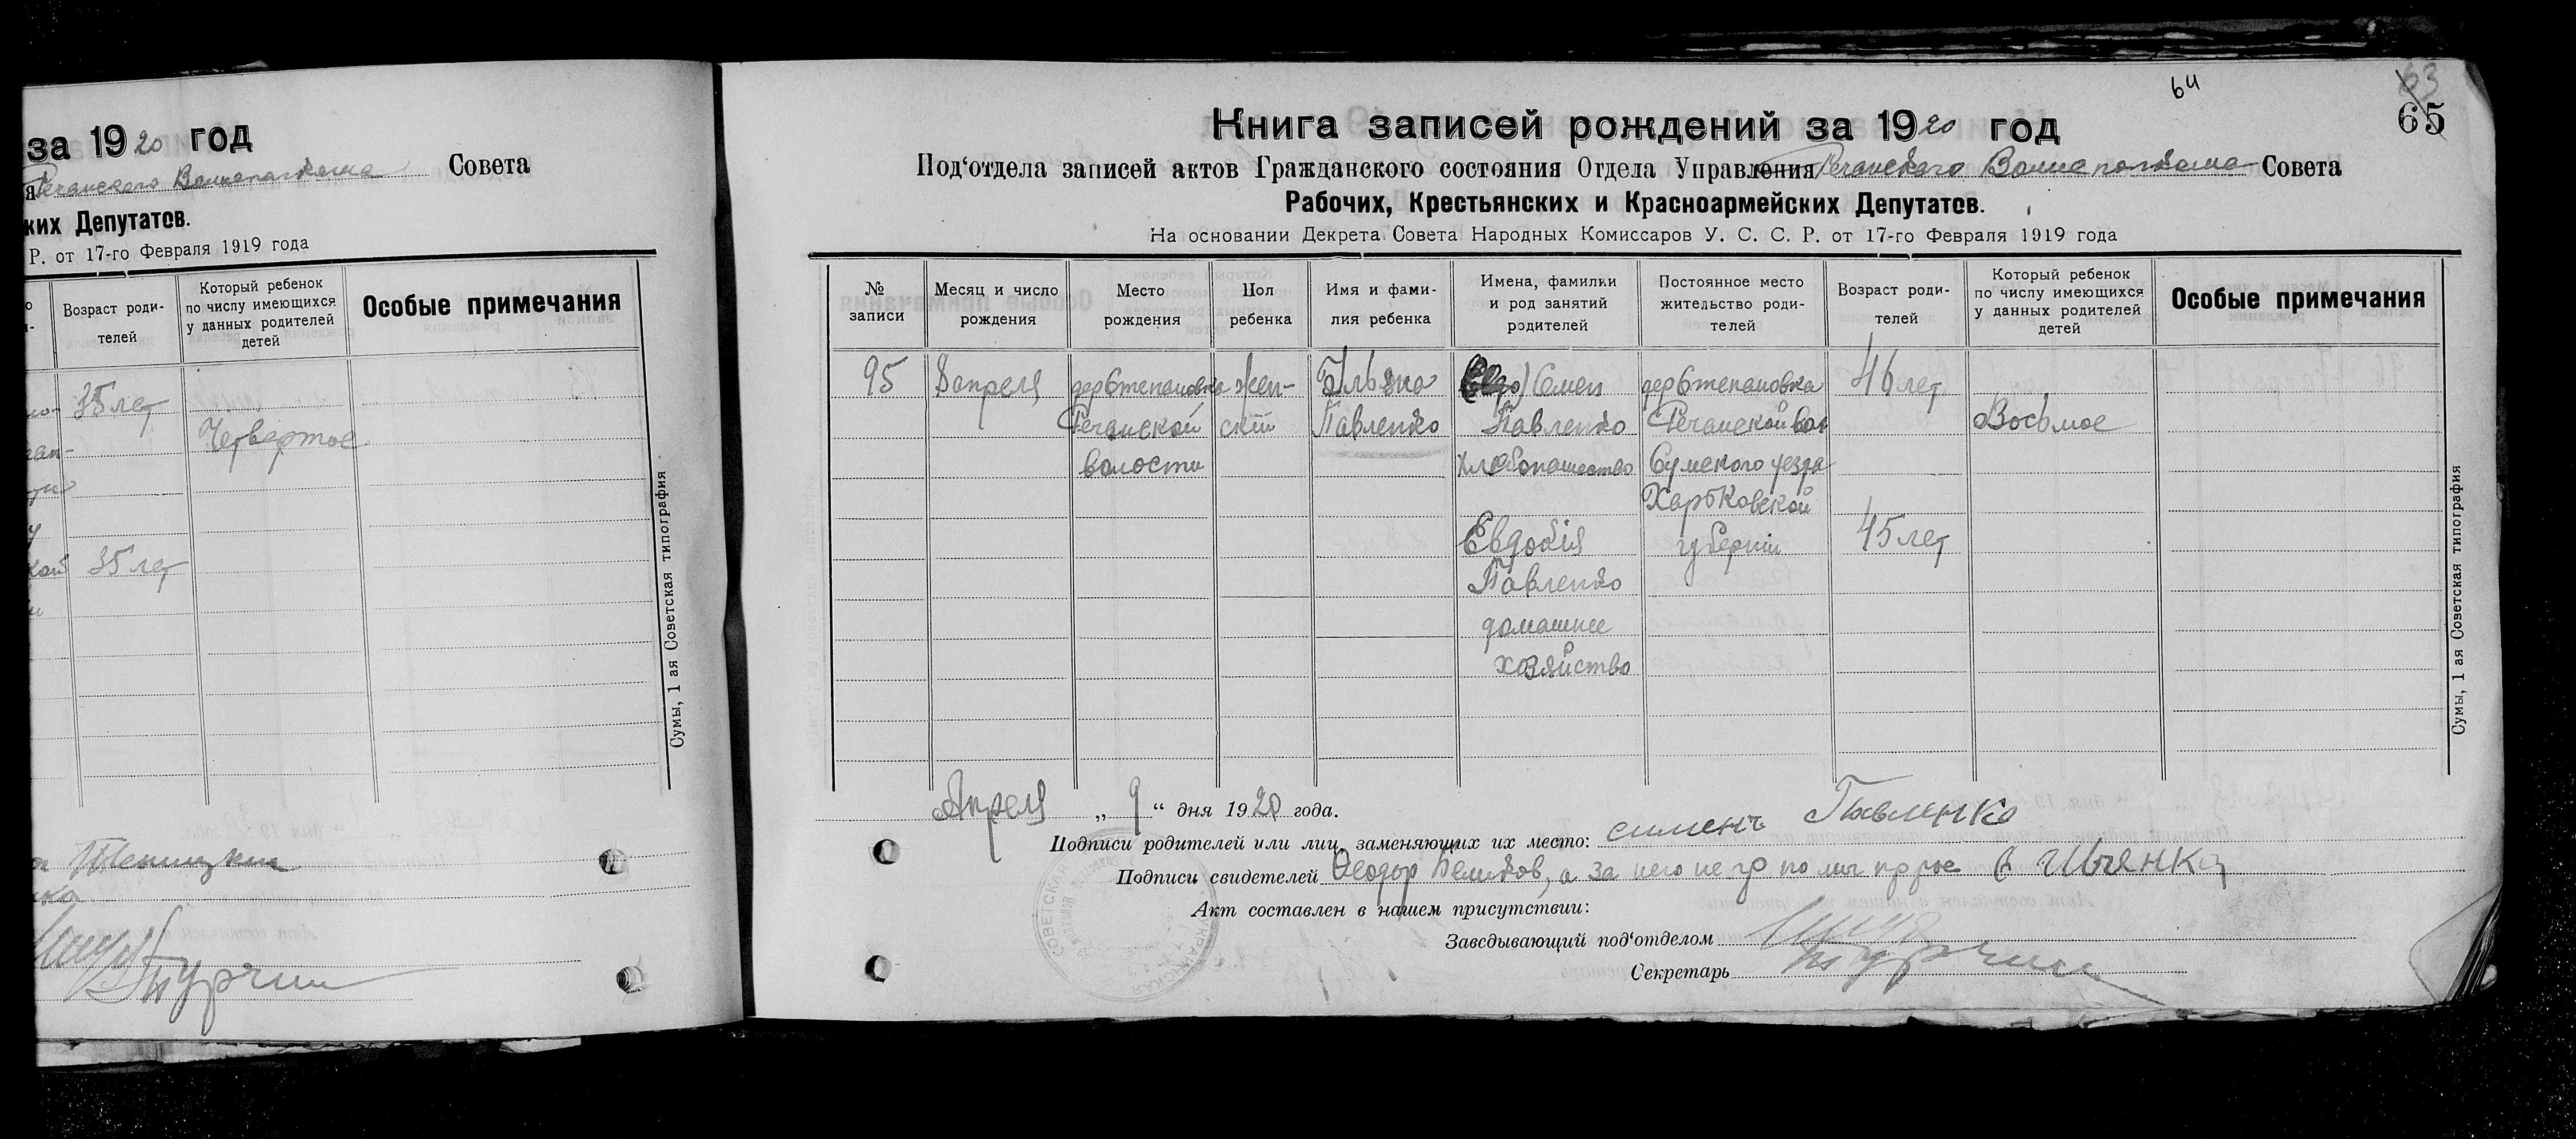 за 1920 год
Речанского Волисполкома Совета
ких Депутатов.
Р. от 17-го Февраля 1919 года
Возраст роди-
телей
Который ребенок
по числу имеющихся
у данных родителей
детей
Особые примечания
35 лет
Четвертое
35 лет
Сумы, 1 ая Советская типография
64
63
65
Книга записей рождений за 1920 год
Под‘отдела записей актов Гражданского состояния Отдела Управления Речанского Волисполкома Совета
Рабочих, Крестьянских и Красноармейских Депутатов.
На основании Декрета Совета Народных Комиссаров У. С. С. Р. от 17-го Февраля 1919 года
№
записи
Месяц и число
рождения
Место
рождения
Пол
ребенка
Имя и фами-
лия ребенка
Имена, фамилии
и род занятий
родителей
Постоянное место
жительство роди-
телей
Возраст роди-
телей
Который ребенок
по числу имеющихся
у данных родителей
детей
Особые примечания
95
8 апреля
дер Степановка
Речанской
волости
жен-
скій
Павленко
Семен
Павленко
хлебопашество
Евдокія
Павленко
домашнее
хозяйство
дер Степановка
Речанской вол
Сумского уезда
Харьковской
губерніи
46 лет
45 лет
Восьмое
Сумы, 1 ая Советская типография
Апреля „ 9 “ дня 1920 года.
Подписи родителей или лиц, заменяющих их место: сименъ Павленко
Подписи свидетелей Феодор Демидов, а за него не гр по лич прозе
Акт составлен в нашем присутствии:
Заведывающий под‘отделом
Секретарь